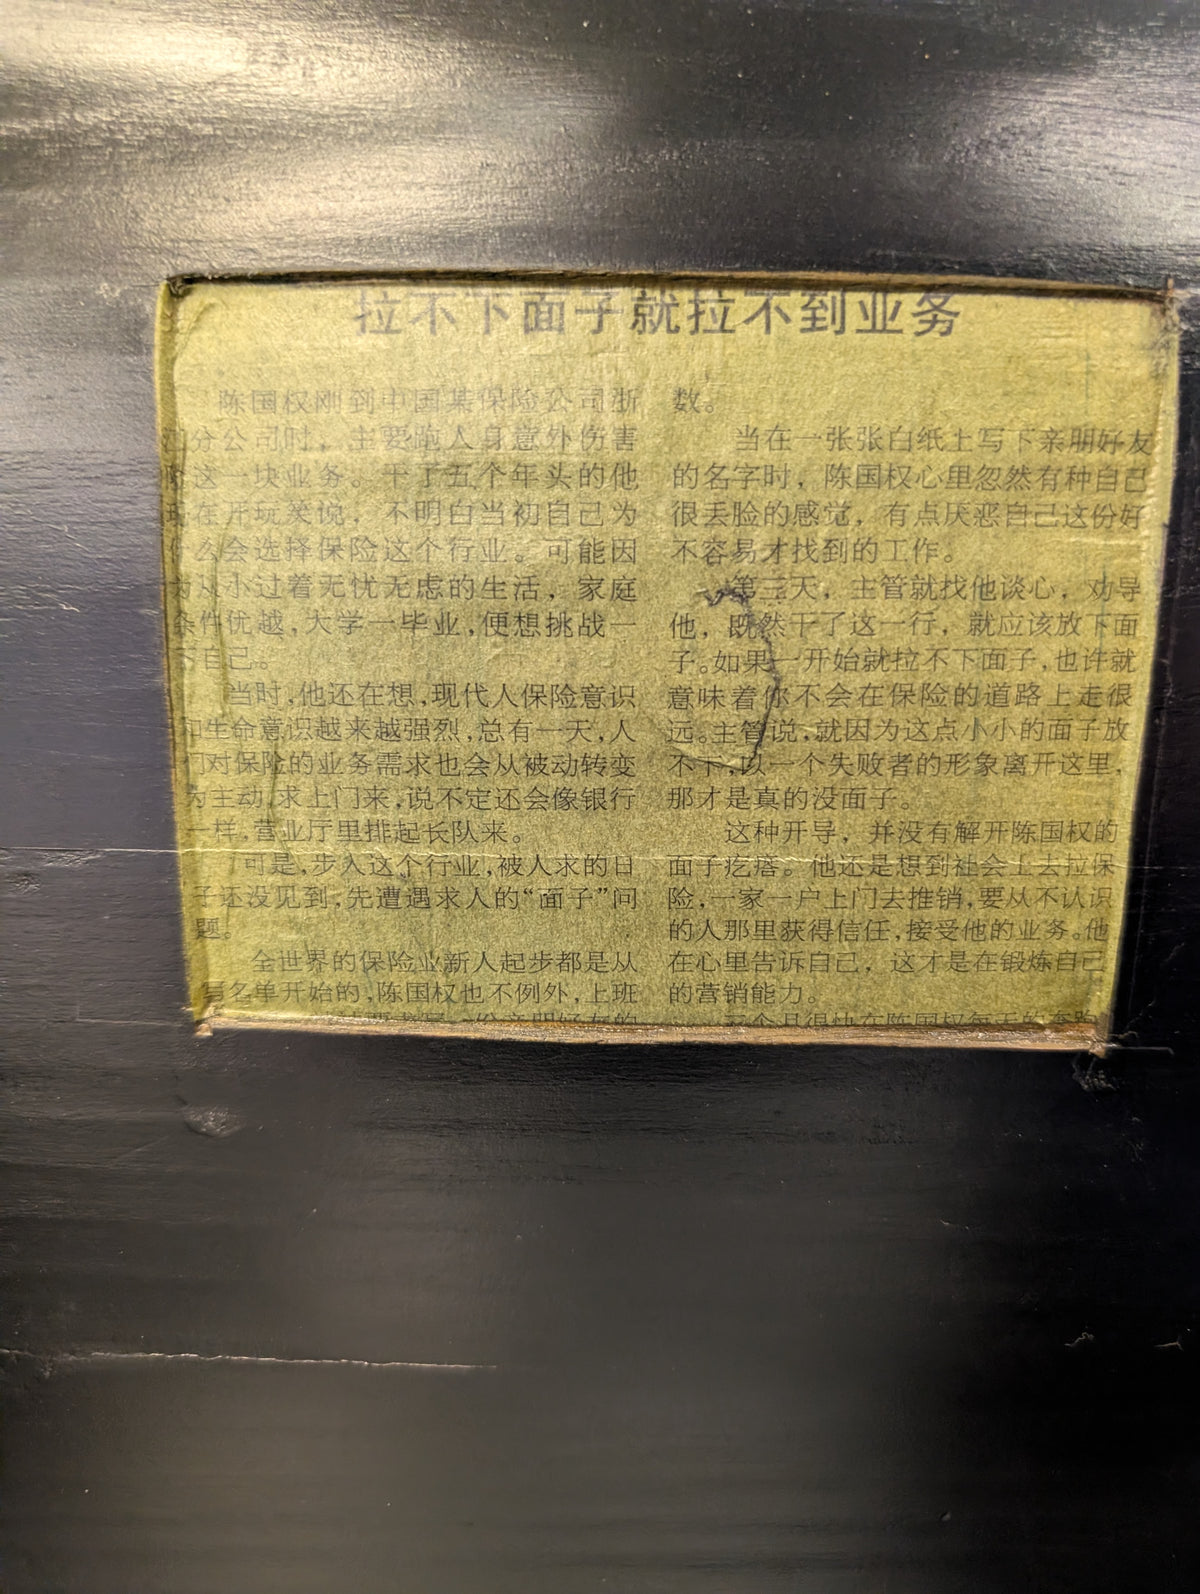 拉不下面子就拉不到业务
陈国权刚到中国某保险公司浙
分公司时，主要跑人身意外伤害
险这一块业务。干了五个年头的他
现在开玩笑说，不明白当初自己为
什么会选择保险这个行业。可能因
为从小过着无忧无虑的生活，家庭
条件优越，大学一毕业，便想挑战一
下自己。
当时，他还在想，现代人保险意识
和生命意识越来越强烈，总有一天，人
们对保险的业务需求也会从被动转变
为主动，求上门来，说不定还会像银行
一样，营业厅里排起长队来。
可是，步入这个行业，被人求的日
子还没见到，先遭遇求人的“面子”问
题。
全世界的保险业新人起步都是从
写名单开始的，陈国权也不例外，上班
份亲朋好友的
数。
当在一张张白纸上写下亲朋好友
的名字时，陈国权心里忽然有种自己
很丢脸的感觉，有点厌恶自己这份好
不容易才找到的工作。
第三天，主管就找他谈心，劝导
他，既然干了这一行，就应该放下面
子。如果一开始就拉不下面子，也许就
意味着你不会在保险的道路上走很
远。主管说，就因为这点小小的面子放
不下，以一个失败者的形象离开这里，
那才是真的没面子。
这种开导，并没有解开陈国权的
面子疙瘩。他还是想到社会上去拉保
险，一家一户上门去推销，要从不认识
的人那里获得信任，接受他的业务。他
在心里告诉自己，这才是在锻炼自己
的营销能力。
三个月很快在陈国权每天的奔跑